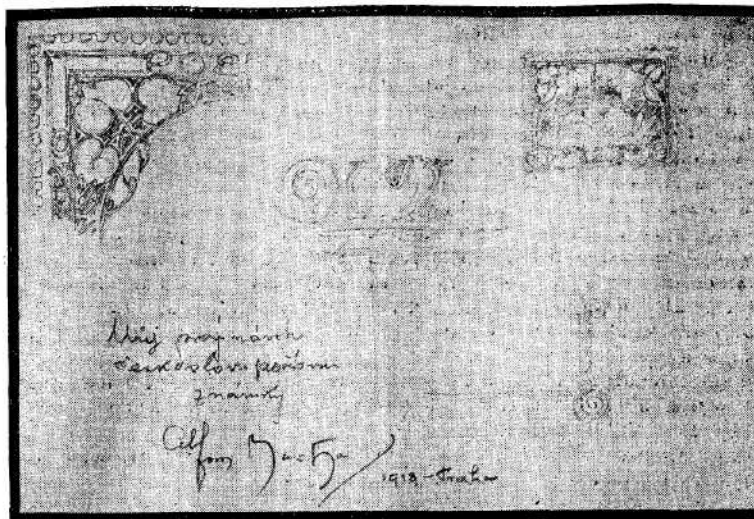 Můj prvý návrh
českoslov. poštovní
známky
Alfons Mucha
1918 – Praha